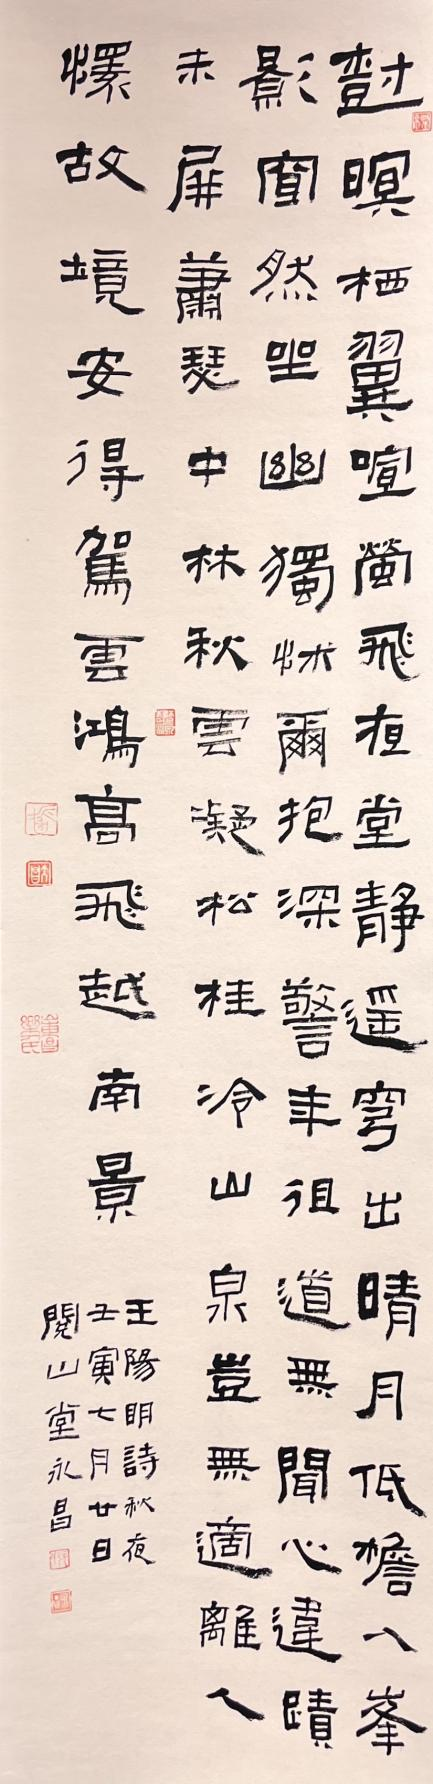 尌暝栖翼喧螢飛夜堂静遥穹出晴月低檐入峯
影窅然坐幽獨怵爾抱深警年徂道無聞心違蹟
未屏蕭瑟中林秋雲凝松桂冷山泉豈無適離人
懷故境安得駕雲鴻高飛越南景
王陽明詩秋夜
壬寅七月廿日
閱山堂永昌